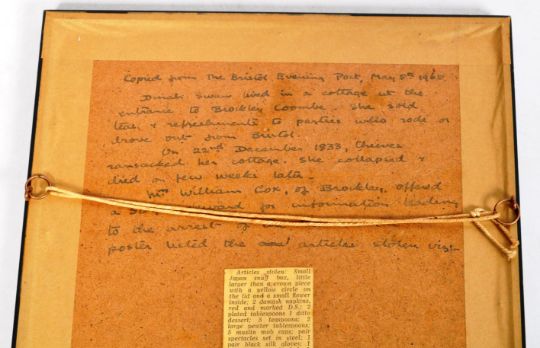 Copied from The Bristol Evening Post, May 8th 1968
Dinah Swan lived in a cottage at the
entrance to Brockley Coombe. She sold
teas & refreshments to parties who rode or
drove out from Bristol.
On 22nd December 1833, thieves
ransacked her cottage. She collapsed &
died a few weeks later.
William Cox, of Brockley, offered
a reward for information leading
to the arrest of
poster listed the articles stolen viz:-
Articles stolen: Small
Japan snuff box, little
larger than a crown piece
with a yellow circle on
the lid and a small flower
inside; 2 damask napkins,
red and marked D.S.; 2
plated tablespoons 1 ditto
dessert; 5 teaspoons; 2
large pewter tablespoons;
5 muslin mob caps; pair
spectacles set in steel; 1
pair black silk gloves; 1